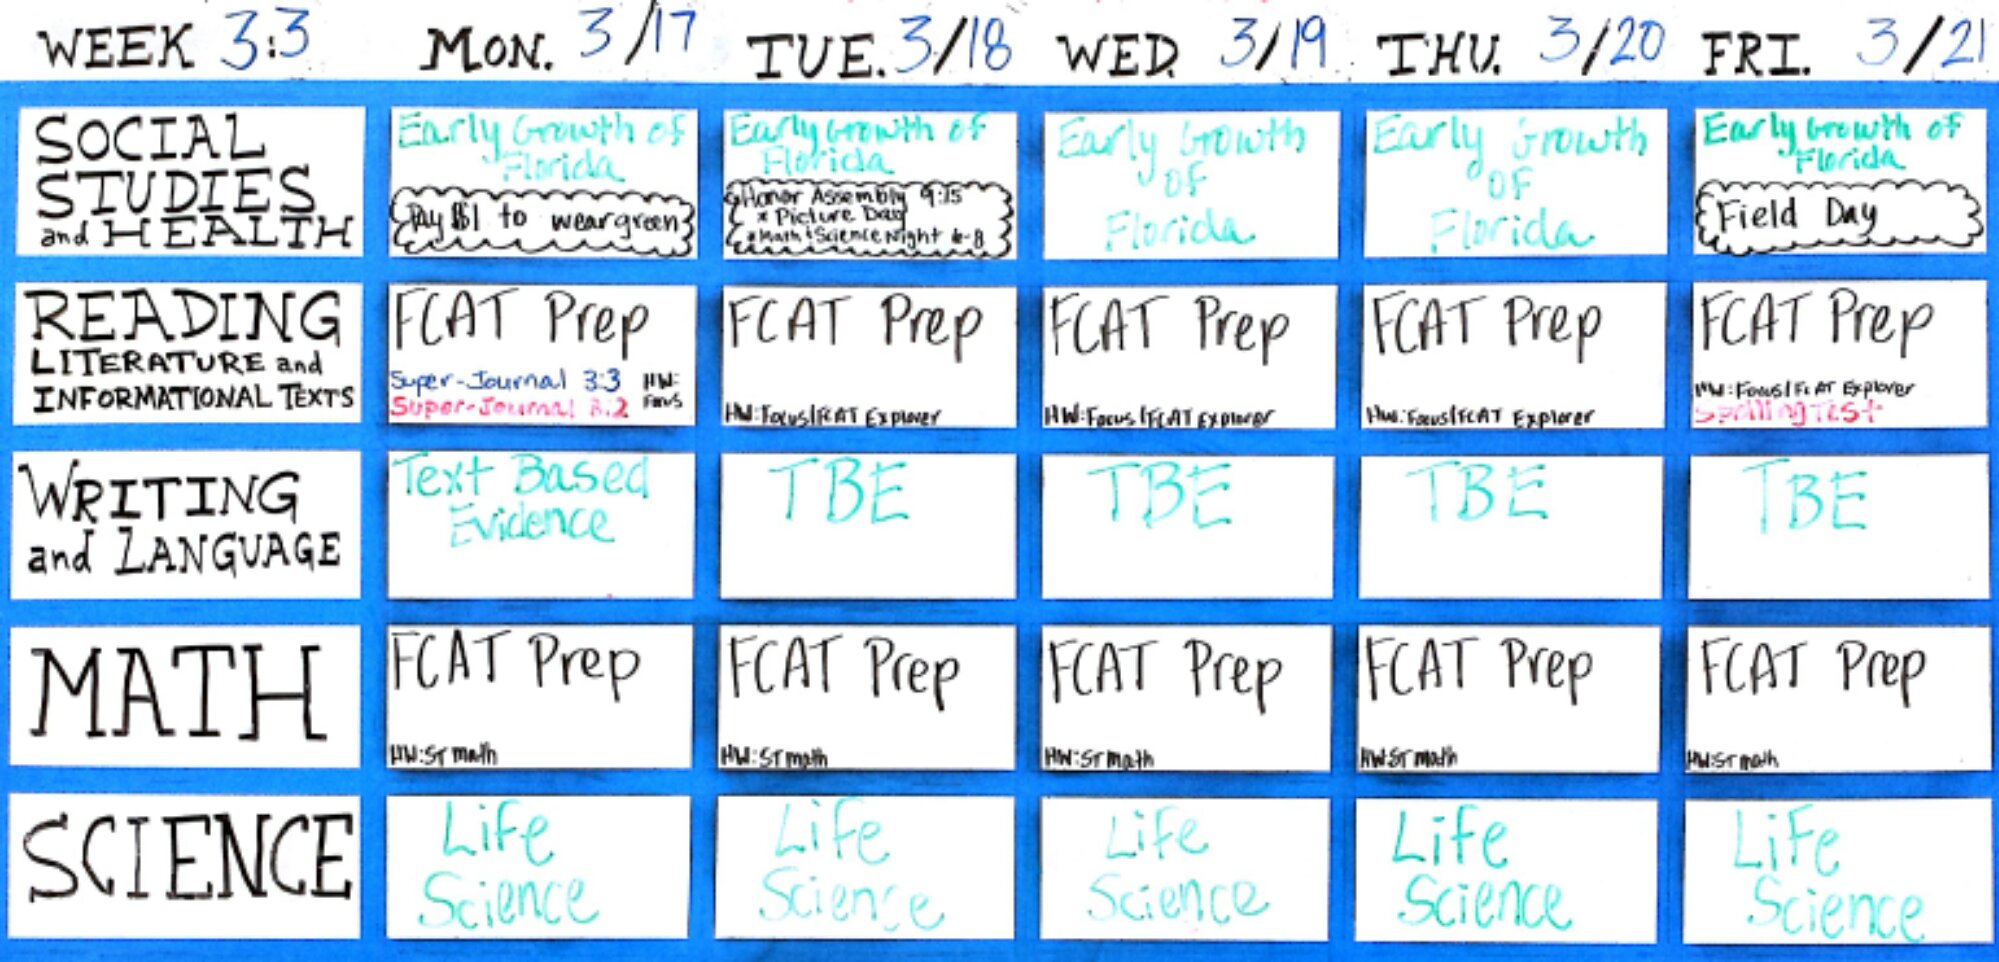 WEEK 3:3
MON. 3/17
TUE. 3/18
WED. 3/19
THU. 3/20
FRI. 3/21
SOCIAL
STUDIES
and HEALTH
Early Growth of
Florida
Pay $1 to wear green
Early Growth of
Florida
Honor Assembly 9:15
* Picture Day
* Math & Science Night 6-8
Early Growth
of
Florida
Early Growth
of
Florida
Early Growth of
Florida
Field Day
READING
LITERATURE and
INFORMATIONAL TEXTS
FCAT Prep
Super-Journal 3:3
Super-Journal 3:2
HW:
Focus
FCAT Prep
HW: Focus/FCAT Explorer
FCAT Prep
HW: Focus/FCAT Explorer
FCAT Prep
HW: Focus/FCAT Explorer
FCAT Prep
HW: Focus/FCAT Explorer
Spelling Test
WRITING
and LANGUAGE
Text Based
Evidence
TBE
TBE
TBE
TBE
MATH
FCAT Prep
HW: ST math
FCAT Prep
HW: ST math
FCAT Prep
HW: ST math
FCAT Prep
HW: ST math
FCAT Prep
HW: ST math
SCIENCE
Life
Science
Life
Science
Life
Science
Life
Science
Life
Science